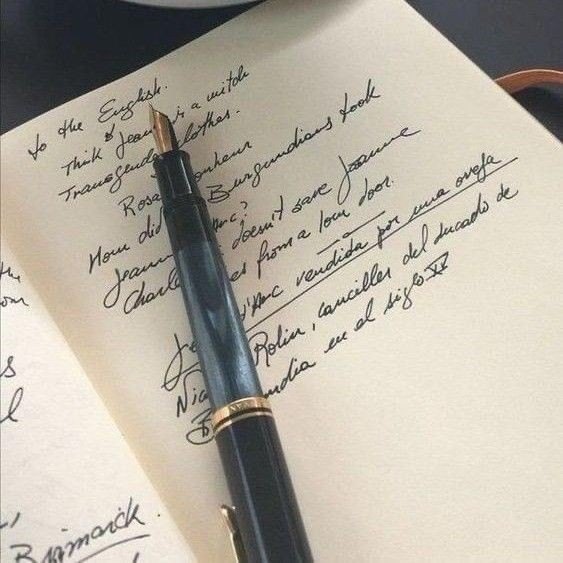 to the English.
Think Jeanne is a witch
Transgender clothes.
Rosa Bonheur
How did Burgundians took
Jeanne Arc?
doesn't save Jeanne
Charles from a tour door.
d'Arc vendida por una oveja
Rolin, canciller del ducado de
en el siglo XV
Bismarck.